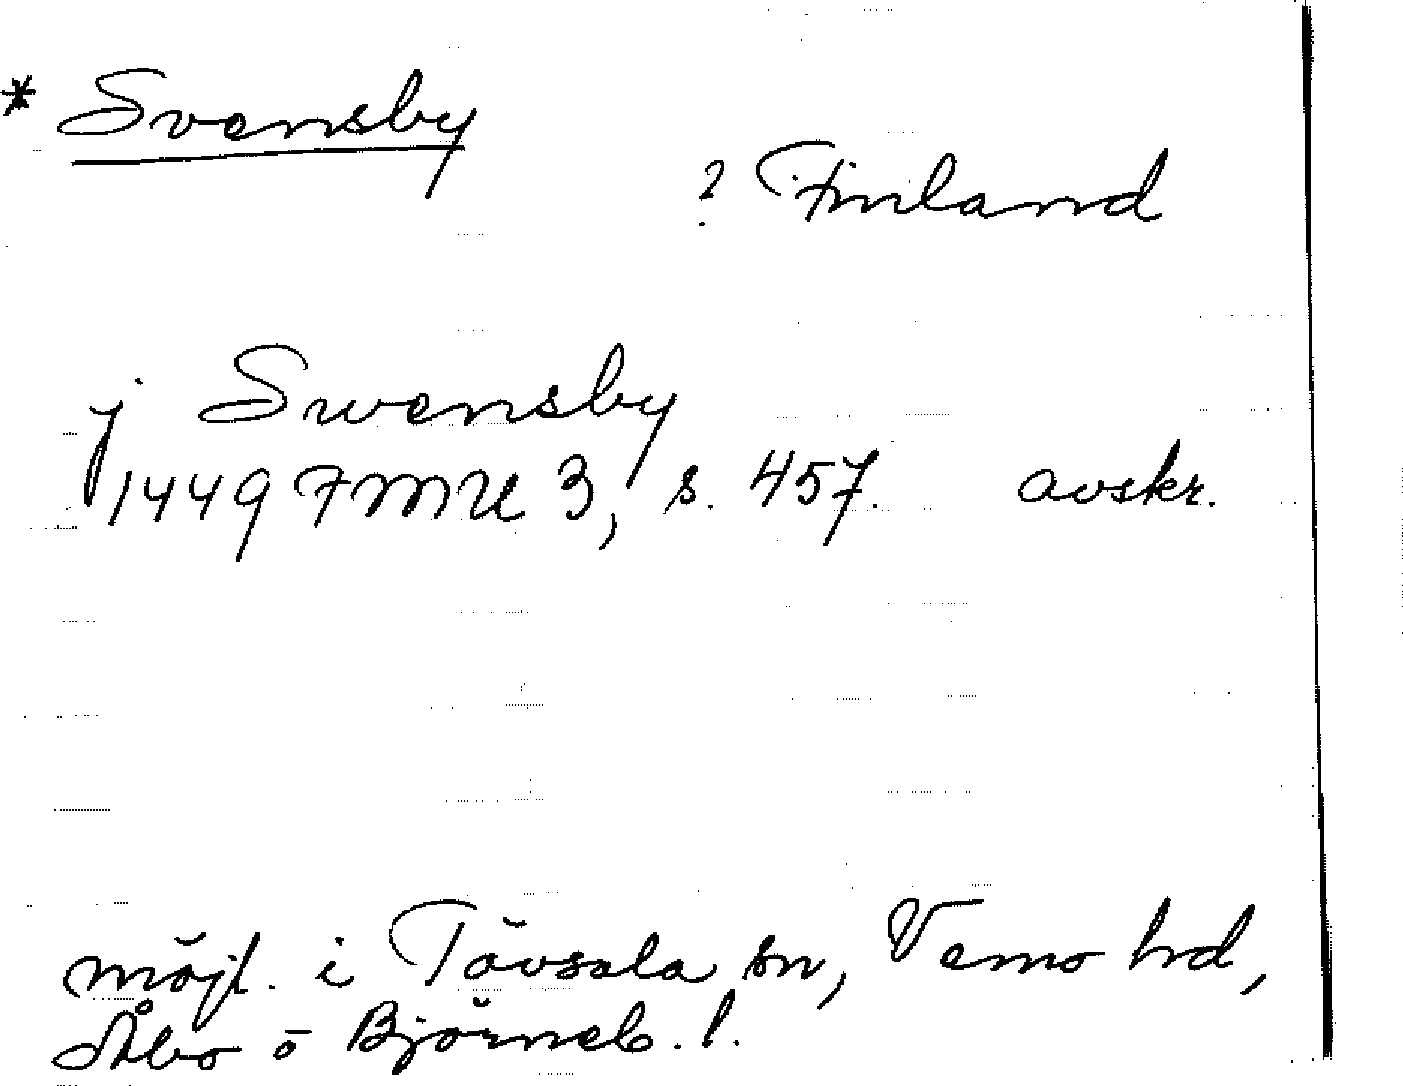 * Svensby
? Finland
j Swensby
1449 FMU 3, s. 457. avskr.
möjl. i Tövsala sn, Vemo hd,
Åbo o Björneb. l.